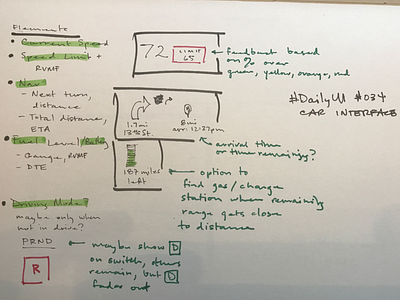 Elements
• Current Speed
• Speed Limit +
RVMF
• Nav
- Next turn,
distance
- Total distance,
ETA
• Fuel Level/Batty
- Gauge, RVMF
- DTE
• Driving Mode?
maybe only when
not in drive?
PRND
R
72
LIMIT
65
1.7mi
13th St.
8mi
arr: 12:27pm
187 miles
left
feedback based
on % over
green, yellow, orange, red
#DailyUI #034
CAR INTERFACE
arrival time
or time remaining?
option to
find gas/charge
station when remaining
range gets close
to distance
maybe show D
on switch, others
remain, but D
fades out